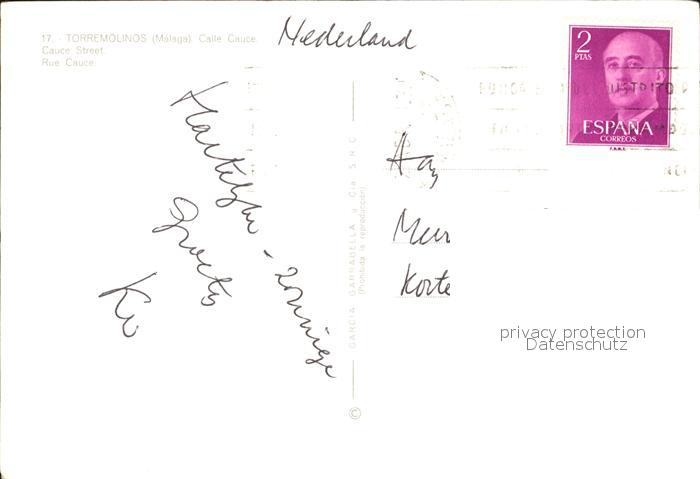 17. - TORREMOLINOS (Málaga). Calle Cauce.
Cauce Street.
Rue Cauce.
Nederland
2
PTAS
ESPAÑA
CORREOS
F.N.M.T.
Hartelijke - zonnige
Groeten
GARCIA GARRABELLA y Cía S.R.C.
(Prohibida la reproducción)
©
Korte
privacy protection
Datenschutz